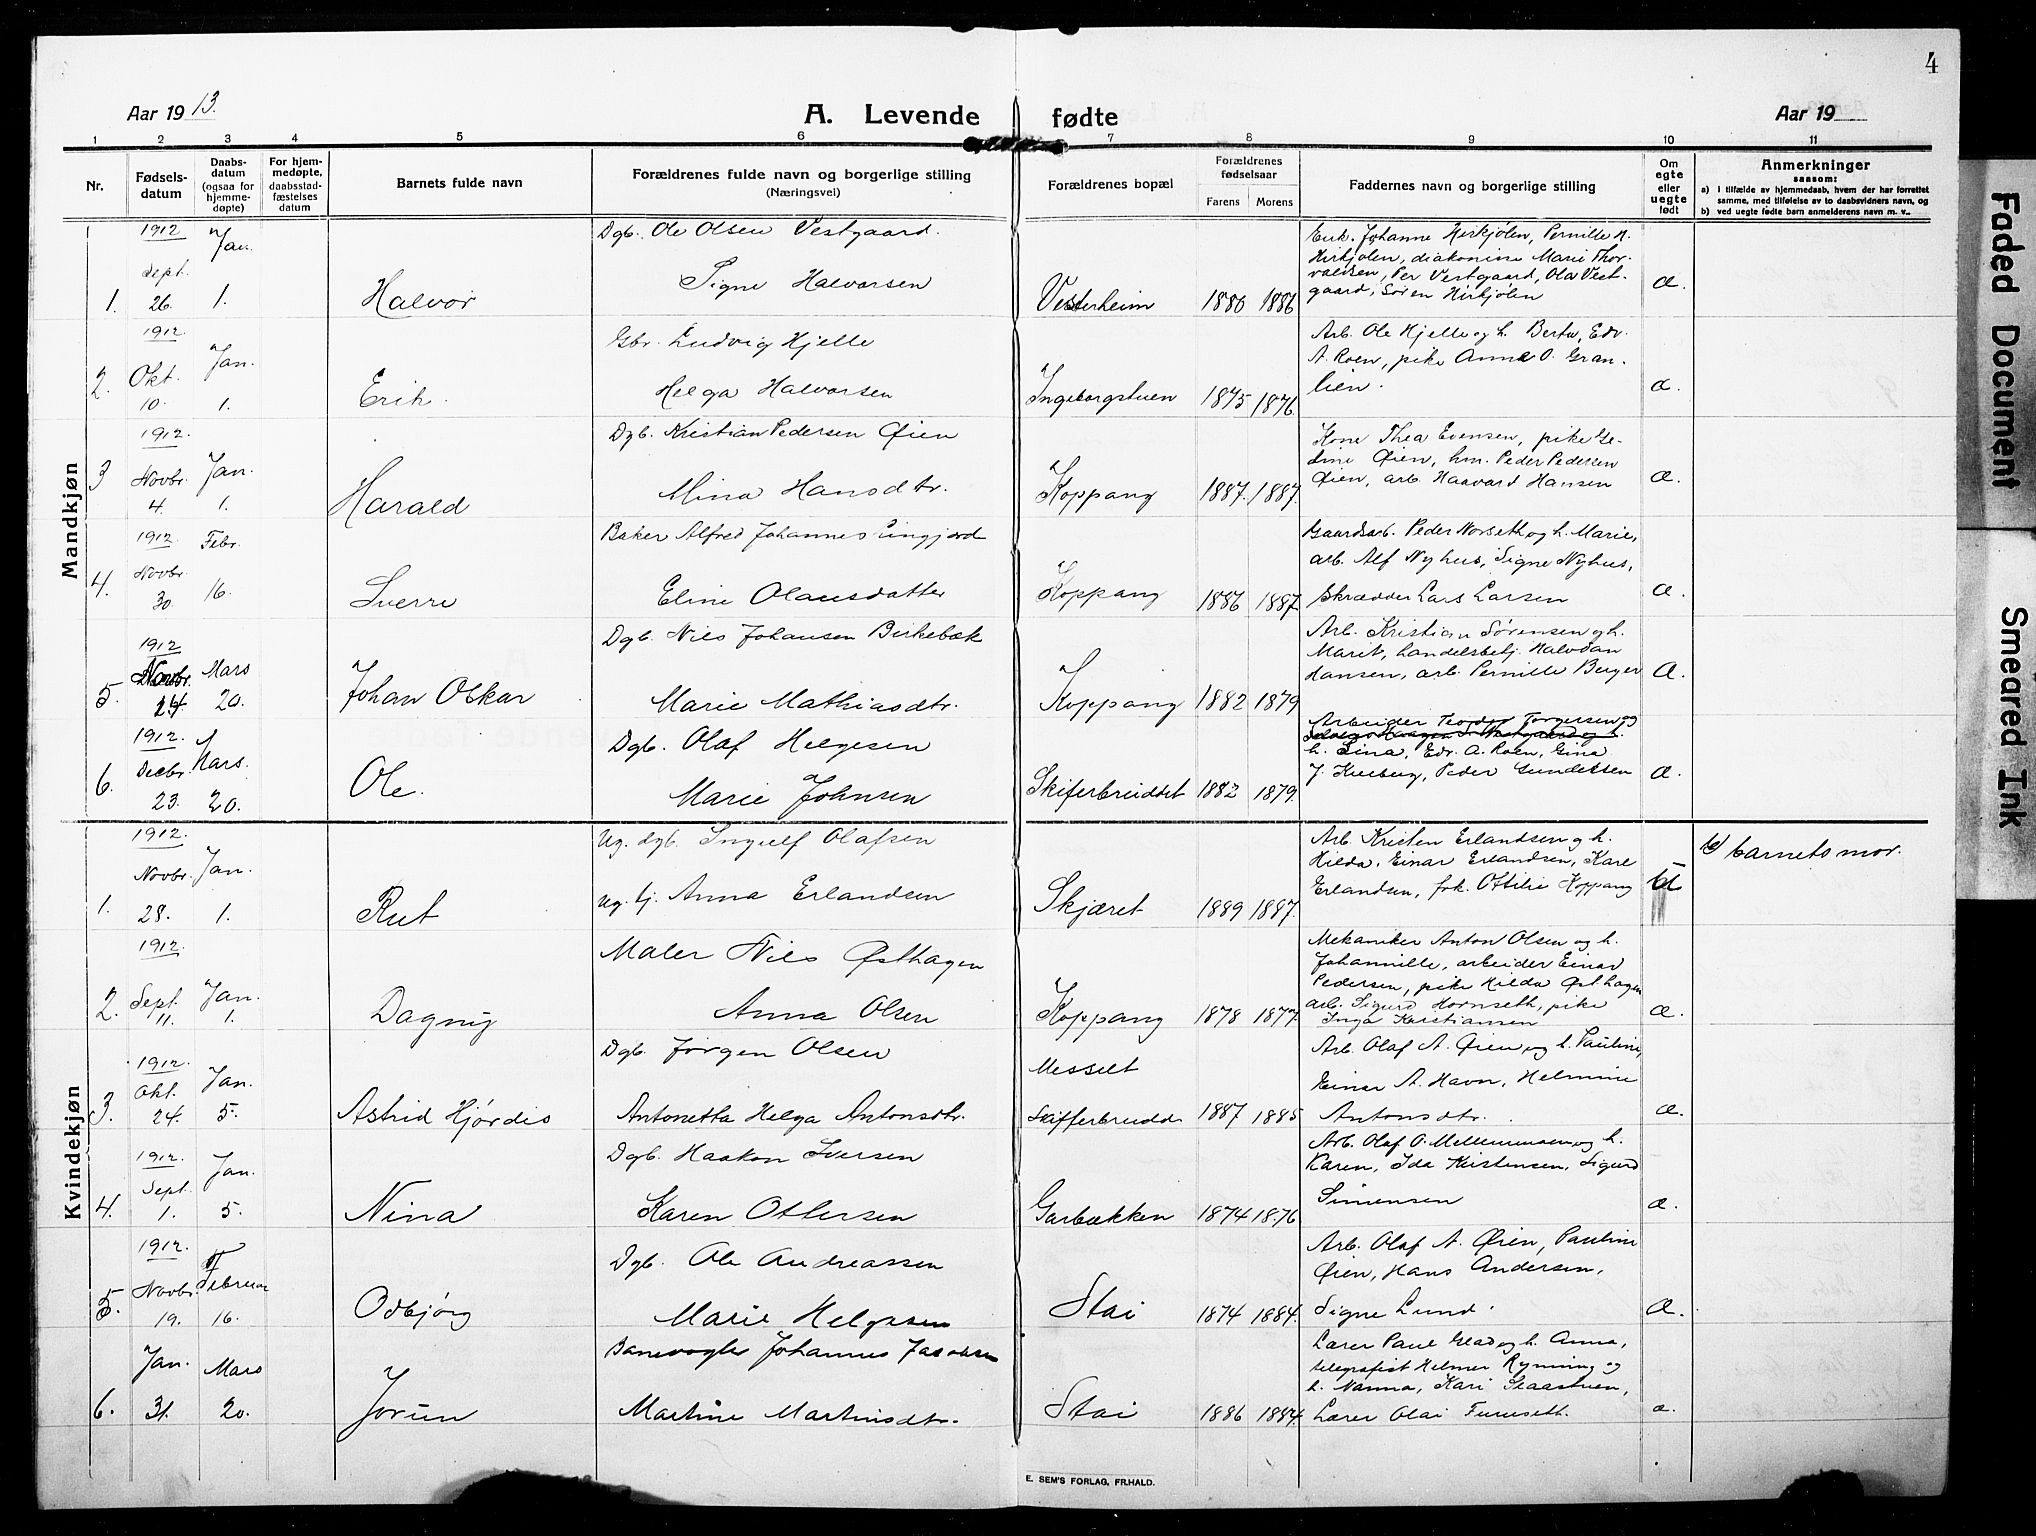 4
Aar 1913.
A. Levende fødte
Aar 19
1 2 3 4 5 6 7 8 9 10 11
Nr.
Fødsels-
datum
Daabs-
datum
(ogsaa for
hjemme-
døpte)
For hjem-
medøpte,
daabsstad-
fæstelses
datum
Barnets fulde navn
Forældrenes fulde navn og borgerlige stilling
(Næringsvei)
Forældrenes bopæl
Forældrenes
fødselsaar
Farens Morens
Faddernes navn og borgerlige stilling
Om
egte
eller
uegte
født
Anmerkninger
saasom:
a) i tilfælde av hjemmedaab, hvem der har forrettet
samme, med tilføielse av to daabsvidners navn, og
b) ved uegte fødte barn anmelderens navn m. v..
Mandkjøn
1.
1912
Sept.
26.
Jan.
1.
Halvor
Dgb. Ole Olsen Vestgaard.
Signe Halvorsen
Vesterheim
1880 1886
Enk. Johanne Hirkjølen, Pernille H.
Hirkjølen, diakonisse Marie Thor-
valdsen, Per Vestgaard, Ola Vest-
gaard, Søren Hirkjølen
æ.
2.
1912.
Okt.
10.
Jan.
1.
Erik.
Gbr. Ludvig Hjelle
Helga Halvorsen
Ingeborgstuen
1875 1876
Arb. Ole Hjelle og h. Berta, Edv.
A. Roen, pike Anne O. Gran-
lien.
æ.
3
1912.
Novbr.
4.
Jan.
1.
Harald
Dgb. Kristian Pedersen Øien
Mina Hansdtr.
Koppang
1887. 1887.
Kone Thea Evensen, pike Ge-
dine Øien, hm. Peder Pedersen
Øien, arb. Haavard Hansen
æ.
4.
1912.
Novbr.
30.
Febr.
16.
Sverre
Baker Alfred Johannes Lingjord
Eline Olausdatter
Koppang
1886 1887
Gaardsarb. Peder Norseth og h. Marie,
arb. Alf Nyhus, Signe Nyhus,
Skrædder Lars Larsen
æ.
5.
1912
Novbr.
24.
Mars
20.
Johan Oskar
Dgb. Nils Johansen Birkebæk
Marie Mathiasdtr.
Koppang
1882 1879
Arb. Kristian Sørensen og h.
Marit, handelsbetj. Halvdan
Hansen, arb. Pernille Berger
Æ.
6.
1912.
Decbr.
23.
Mars.
20.
Ole.
Dgb. Olaf Helgesen
Marie Johnsen
Skiferbruddet
1882 1879.
Arbeider Teodor Torgersen og
h. Lina, Edv. A. Roen, Gina
J. Kveberg, Peder Gundersen
æ.
Kvindekjøn
1.
1912.
Novbr.
28.
Jan.
1.
Rut
Ug. dgb. Ingulf Olafsen
Ug. tj. Anna Erlandsen
Skjæret
1889 1887.
Arb. Kristen Erlandsen og h.
Hilda, Einar Erlandsen, Karl
Erlandsen, frk. Ottilie Koppang
b) barnets mor.
2.
1912.
Sept.
11.
Jan.
1.
Dagny
Maler Nils Østhagen
Anna Olsen
Koppang
1878 1877.
Mekaniker Anton Olsen og h.
Johannille, arbeider Einar
Pedersen, pike Hilda Østhagen
arb. Sigurd Hornseth, pike
Inga Karstiansen
æ.
3.
1912.
Okt.
24.
Jan.
5.
Astrid Hjørdis
Dgb. Jørgen Olsen
Antonetta Helga Antonsdtr.
Messelt
Skifferbrudd.
1887 1885
Arb. Olaf A. Øien og h. Pauline,
Einar A. Havn, Helmine
Antonsdtr.
æ.
4.
1912.
Sept.
1.
Jan.
5.
Nina
Dgb. Haakon Iversen
Karen Ottersen
Garbækken
1874 1876
Arb. Olaf O. Mellemmoen og h.
Karen, Ida Kristensen, Sigurd
Simensen
æ.
5.
1912.
Novbr.
19.
Februar
16.
Odbjørg
Dgb. Ole Andreassen
Marie Helgesen
Stai
1874 1884.
Arb. Olaf A. Øien, Pauline
Øien, Hans Andersen,
Signe Lund.
Æ.
6.
Jan.
31.
Mars
20.
Jorun
Banevogter Johannes Jacobsen
Martine Martinsdtr.
Stai
1886 1884.
Lærer Paul Glad og h. Anna,
telegrafist Helmer Rynning og
h. Nanna, Kari Staastuen,
Lærer Olai Furuseth.
æ.
E. SEM'S FORLAG, FR.HALD.
Faded Document
Smeared Ink